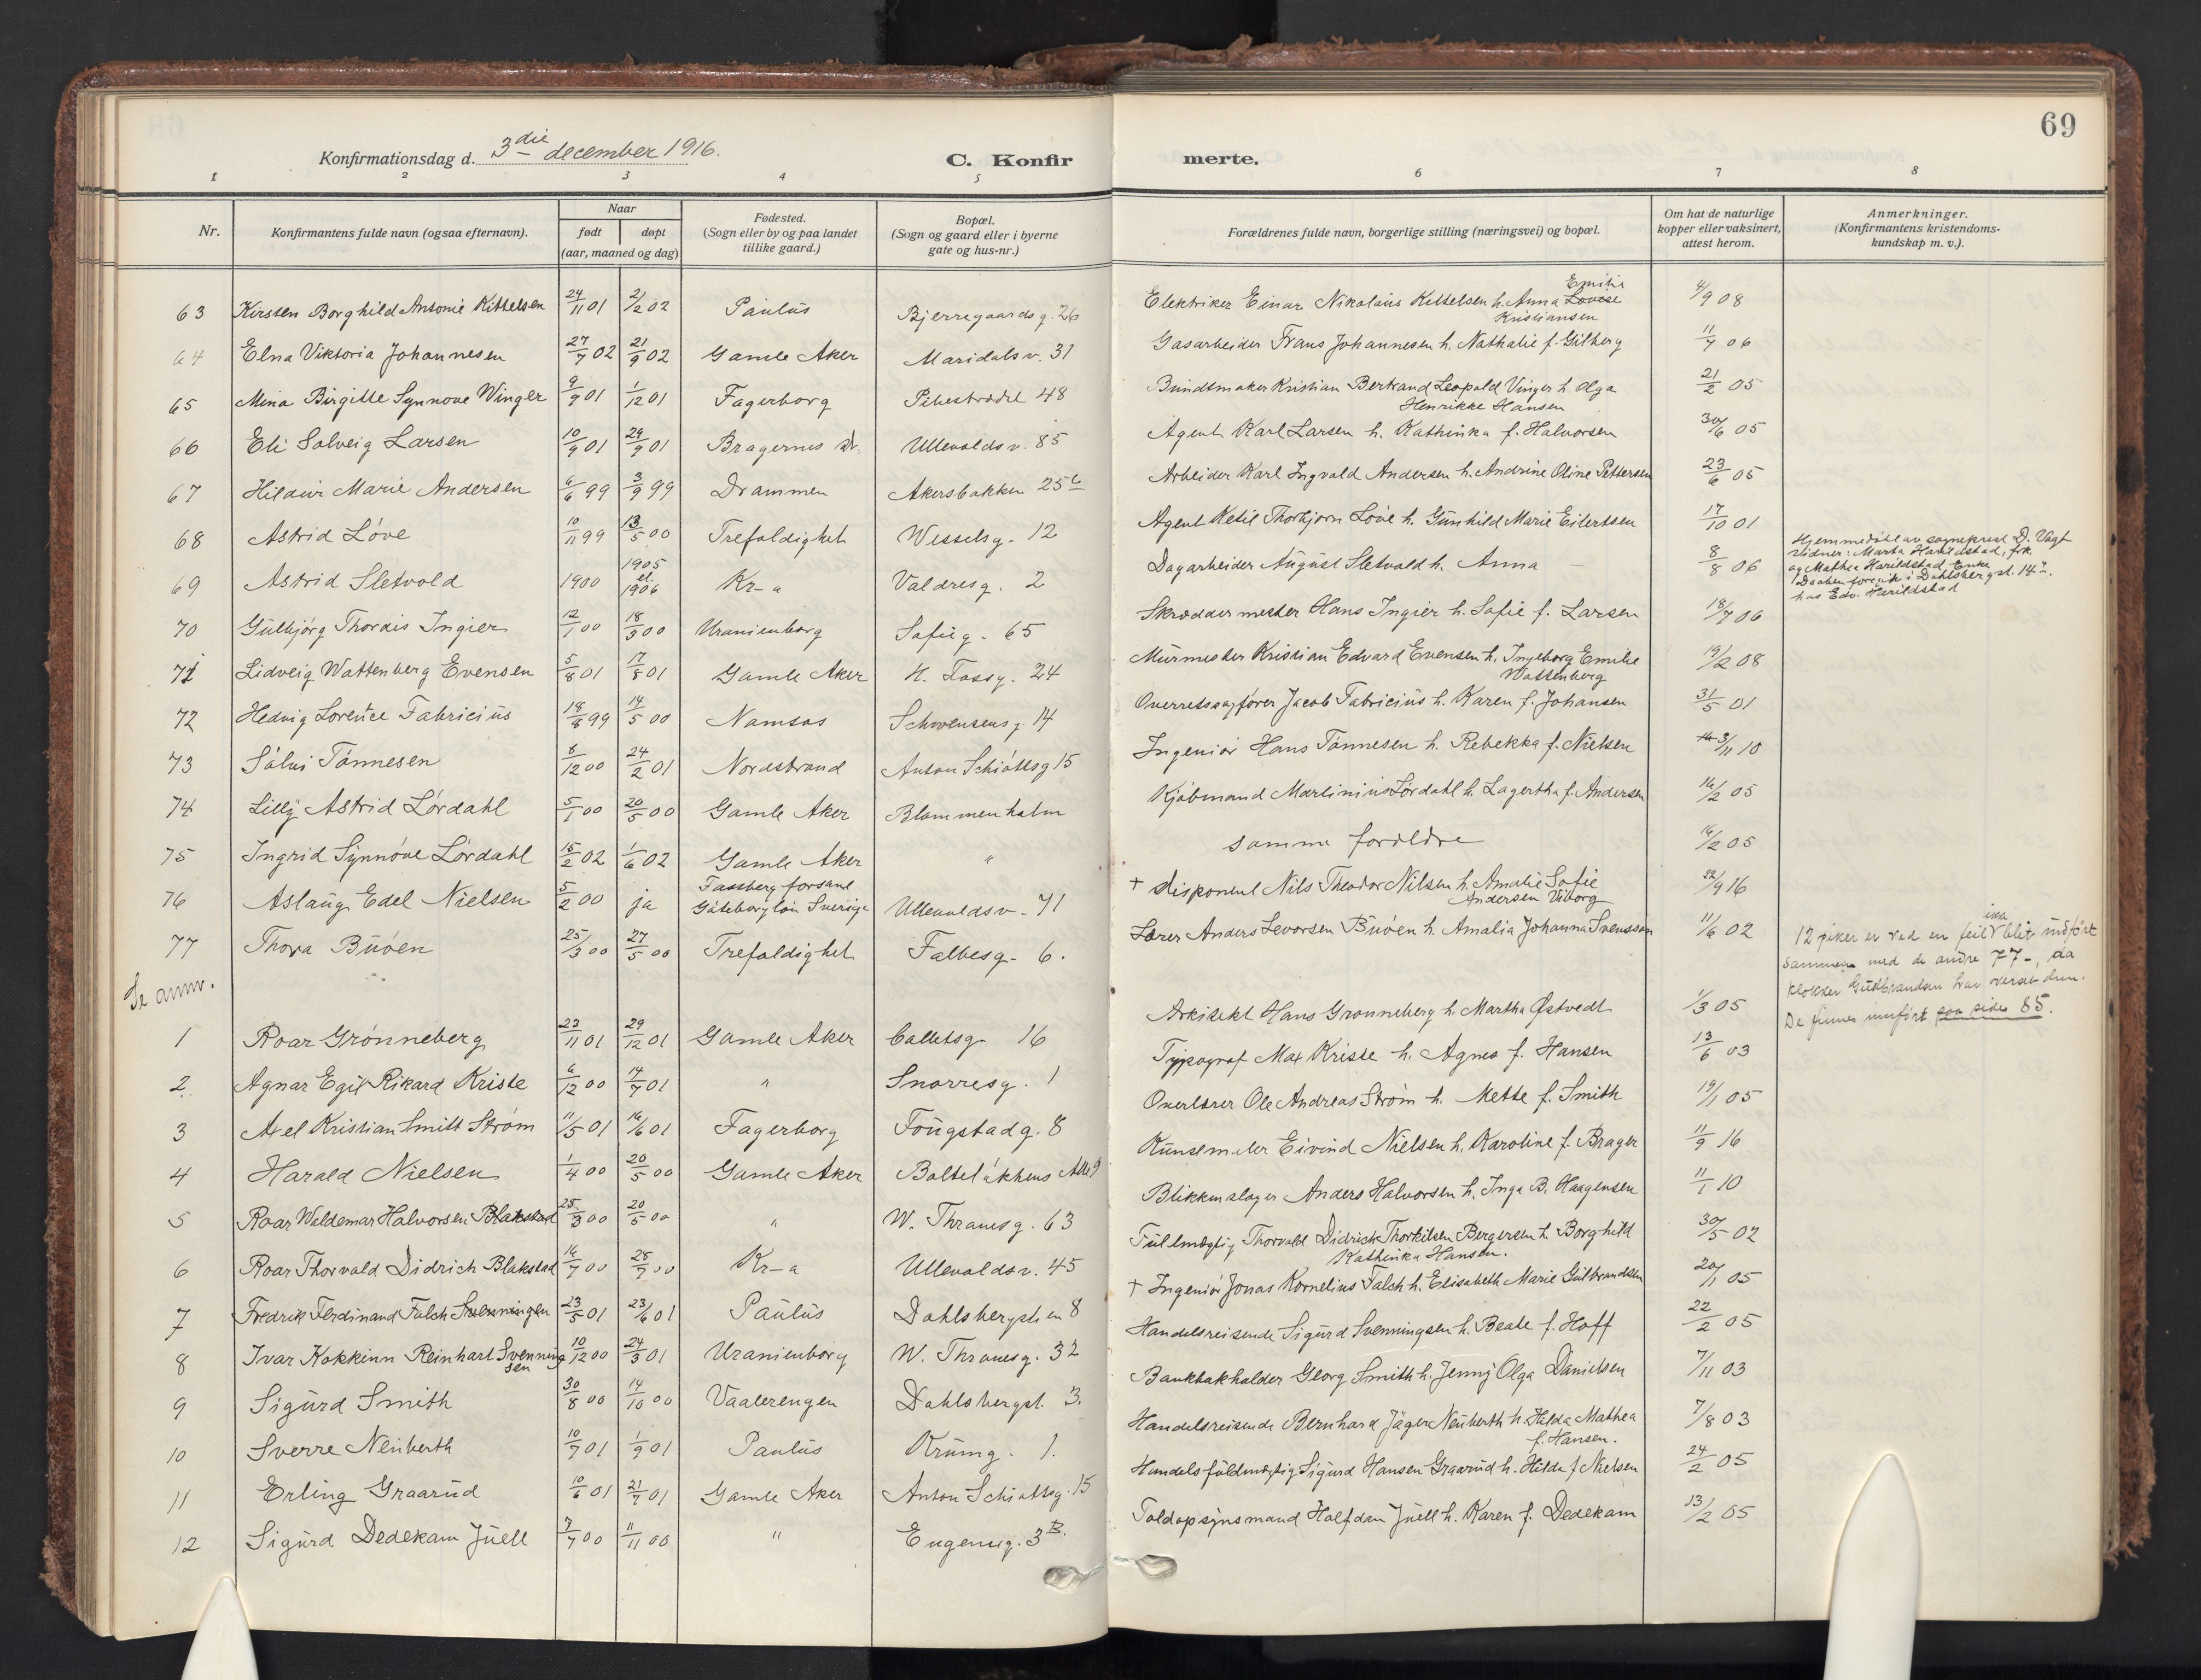 69
Konfirmationsdag d. 3die december 1916.
C. Konfir merte.
1 2 3 4 5 6 7 8
Nr.
Konfirmantens fulde navn (ogsaa efternavn).
Naar
født døpt
(aar, maaned og dag)
Fødested.
(Sogn eller by og paa landet
tillike gaard.)
Bopæl.
(Sogn og gaard eller i byerne
gate og hus-nr.)
Forældrenes fulde navn, borgerlige stilling (næringsvei) og bopæl.
Om hat de naturlige
kopper eller vaksinert,
attest herom.
Anmerkninger.
(Konfirmantens kristendoms-
kundskap m. v.).
63 Kirsten Borghild Antonie Kittelsen 24/11 01 2/2 02 Paulus Bjerregaardsg. 26 Elektriker Einar Nikolaus Kittelsen h. Anna Lovise Emilie Kristiansen 4/9 08
64 Elna Viktoria Johannesen 27/7 02 21/9 02 Gamle Aker Maridalsv. 31 Gasarbeider Frans Johannesen h. Nathalie f. Gilberg 11/7 06
65 Mina Birgitte Synnove Winger 9/9 01 1/12 01 Fagerborg Pilestrædet 48 Bundtmaker Kristian Bertrand Leopold Vinger h. Olga Henrikke Hansen 21/2 05
66 Eli Solveig Larsen 10/9 01 29/9 01 Bragernes Dr. Ullevoldsv. 85 Agent Karl Larsen h. Kathinka f. Halvorsen 30/6 05
67 Hildur Marie Andersen 6/6 99 3/9 99 Drammen Akersbakken 25 c Arbeider Karl Ingvald Andersen h. Andrine Oline Pettersen 23/6 05
68 Astrid Löve 10/11 99 13/5 00 Trefoldighet Wesselsg. 12 Agent Ketil Thorbjørn Löve h. Gunhild Marie Eilertsen 17/10 01
69 Astrid Sletvold 1900 1905 el. 1906 Kr-a Valdresg. 2 Dagarbeider August Sletvold h. Anna — 8/8 06
Hjemmedøbt av sogneprest D. Vogt
vidner: Marta Harildstad, frk.
og Mathea Harildstad Enke
Daaben foregik i Dahlsbergst. 14
hos Edv. Harildstad
70 Gulbjörg Thordis Ingier 12/1 00 18/3 00 Uranienborg Sofieg. 65 Skræddermester Hans Ingier h. Sofie f. Larsen 18/7 06
71 Lidveig Wattenberg Evensen 5/8 01 17/8 01 Gamle Aker K. Fossg. 24 Murmester Kristian Edvard Evensen h. Ingeborg Emilie Wattenberg 19/2 08
72 Hedvig Lorentse Fabricius 18/8 99 14/5 00 Namsos Schwensensg. 14 Overretssagfører Jacob Fabricius h. Karen f. Johansen 31/5 01
73 Sölvi Tönnesen 8/12 00 24/2 01 Nordstrand Anton Schiöttsg 15 Ingeniör Hans Tönnesen h. Rebekka f. Nielsen 3/11 10
74 Lilly Astrid Lördahl 5/1 00 20/5 00 Gamle Aker Blommenholm Kjöbmand Martinius Lördahl h. Lagertha f. Andersen 16/2 05
75 Ingrid Synnöve Lördahl 15/2 02 1/6 02 Gamle Aker " samme forældre 16/2 05
76 Aslaug Edel Nielsen 5/2 00 ja Fassberg forsaml Göteborg län Sverige Ullevoldsv. 71 + disponent Nils Theodor Nilsen h. Amalie Sofie Andersen Viborg 22/9 16
77 Thora Buöen 25/3 00 27/5 00 Trefoldighet Falbesg. 6. Lærer Anders Levorsen Buöen h. Amalia Johanna Svensson 11/6 02
12 piker er ved en feil ikke blit indført
sammen med de andre 77-, da
klokker Gudbrandsen har overset dem.
De finnes innført paa side 85.
Se anm.
1 Roar Grønneberg 23/11 01 29/12 01 Gamle Aker Colletsg 16 Arkitekt Hans Grønneberg h. Martha Østvedt 1/3 05
2. Agnar Egil Rikard Kriste 6/12 00 14/7 01 " Snorresg. 1 Typograf Max Kriste h. Agnes f. Hansen 13/6 03
3 Axel Kristian Smitt Ström 11/5 01 16/6 01 Fagerborg Fougstadg. 8 Overlærer Ole Andreas Ström h. Mette f. Smith 19/1 05
4 Harald Nielsen 1/4 00 20/5 00 Gamle Aker Bolteløkkens Alle 9 Kunstmaler Eivind Nielsen h. Karoline f. Brager 11/9 16
5 Roar Waldemar Halvorsen Blakstad 25/3 00 20/5 00 " W. Thranesg. 63 Blikkenslager Anders Halvorsen h. Inga B. Haagensen 11/1 10
6 Roar Thorvald Didrich Blakstad 16/7 00 28/7 00 Kr-a Ullevoldsv. 45 Fuldmægtig Thorvald Didrich Thorkilsen Bergersen h. Borghild Kathinka Hansen. 30/5 02
7 Fredrik Ferdinand Falch Svenningen 23/5 01 23/6 01 Paulus Dahlsbergstien 8 + Ingeniör Jonas Kornelius Falch h. Elisabeth Marie Gulbrandsen 20/1 05
8 Ivar Kokkinn Reinhart Svenningsen 10/12 00 24/3 01 Uranienborg W. Thranesg. 32 Handelsreisende Sigurd Svenningsen h. Beate f. Hoff 22/2 05
9 Sigurd Smith 30/8 00 14/10 00 Vaalerengen Dahlsbergst. 3. Bankbokholder Georg Smith h. Jenny Olga Danielsen 7/11 03
10 Sverre Neuberth 10/7 01 1/9 01 Paulus Krumg. 1. Handelsreisende Bernhard Jäger Neuberth h. Hilda Mathea f. Hansen. 7/8 03
11 Erling Graarud 10/6 01 21/7 01 Gamle Aker Anton Schiøttsg. 15 Handelsfuldmægtig Sigurd Hansen Graarud h. Hilda f Nielsen 24/2 05
12 Sigurd Dedekam Juell 7/7 00 11/11 00 " Eugenieg. 3 B. Toldopsynsmand Halfdan Juell h. Karen f. Dedekam 13/2 05